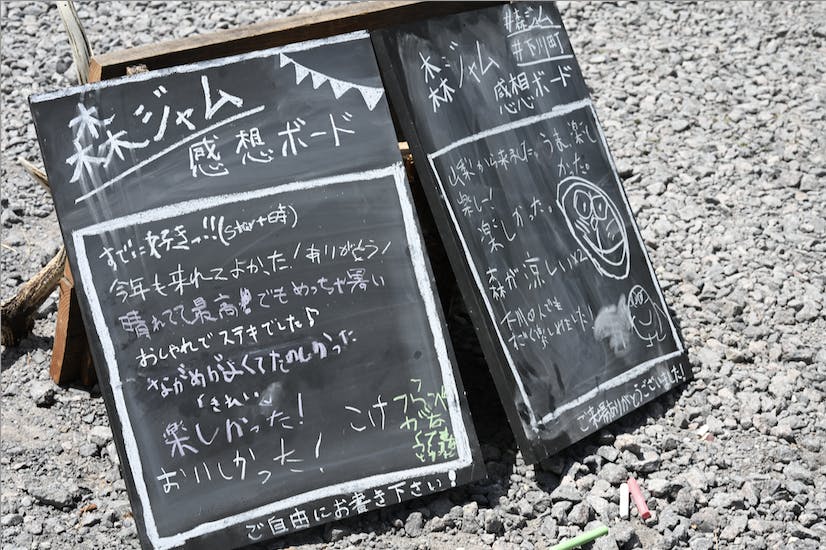 森ジャム
感想ボード
すでに好きっ!!(start時)
今年も来れてよかった!ありがとう!
晴れてて最高!でもめっちゃ暑い
おしゃれでステキでした♪
ながめがよくてたのしかった
きれい〜
楽しかった!
おいしかった!
こけ
ご自由にお書き下さい!
#森ジャム
#下川町
森ジャム
感想ボード
山梨から来ました。うま、楽し
かった。
楽しー!
楽しかった。
森が涼しい
下川の人でも
楽しめました!
ご来場ありがとうございました!